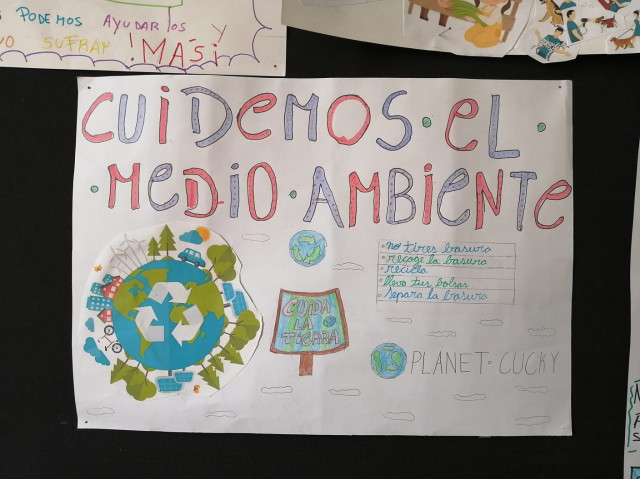 PODEMOS AYUDARLOS Y
SUFRAN ¡MAS!
CUIDEMOS · EL
· MEDIO · AMBIENTE
no tires basura
recoge la basura
recicla
lleva tus bolsas
separa la basura
CUIDA
LA
TIERRA
PLANET-CUCKY